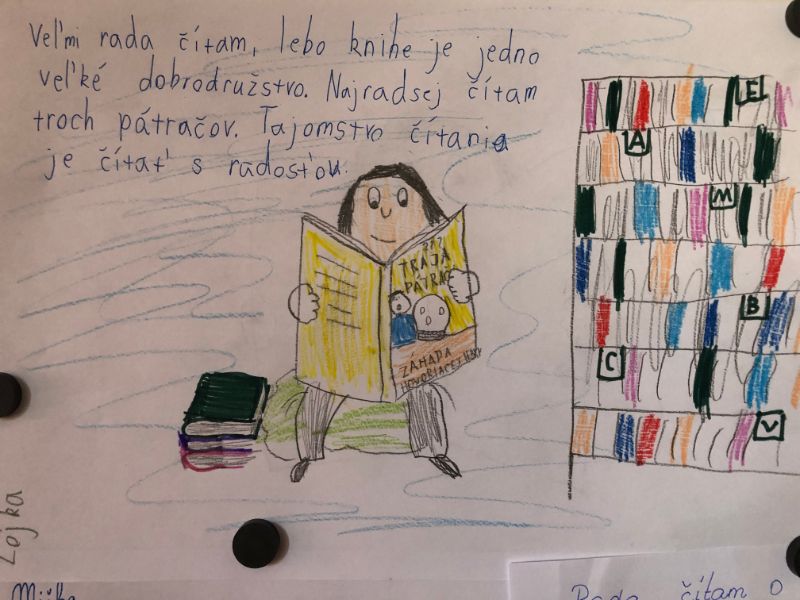 Veľmi rada čítam, lebo knihe je jedno
veľké dobrodružstvo. Najradsej čítam
troch pátračov. Tajomstvo čítania
je čítať s radosťou.
E
A
M
B
C
V
TRAJA
PÁTRAČ
ZÁHADA
Lojka
Rada čítam o